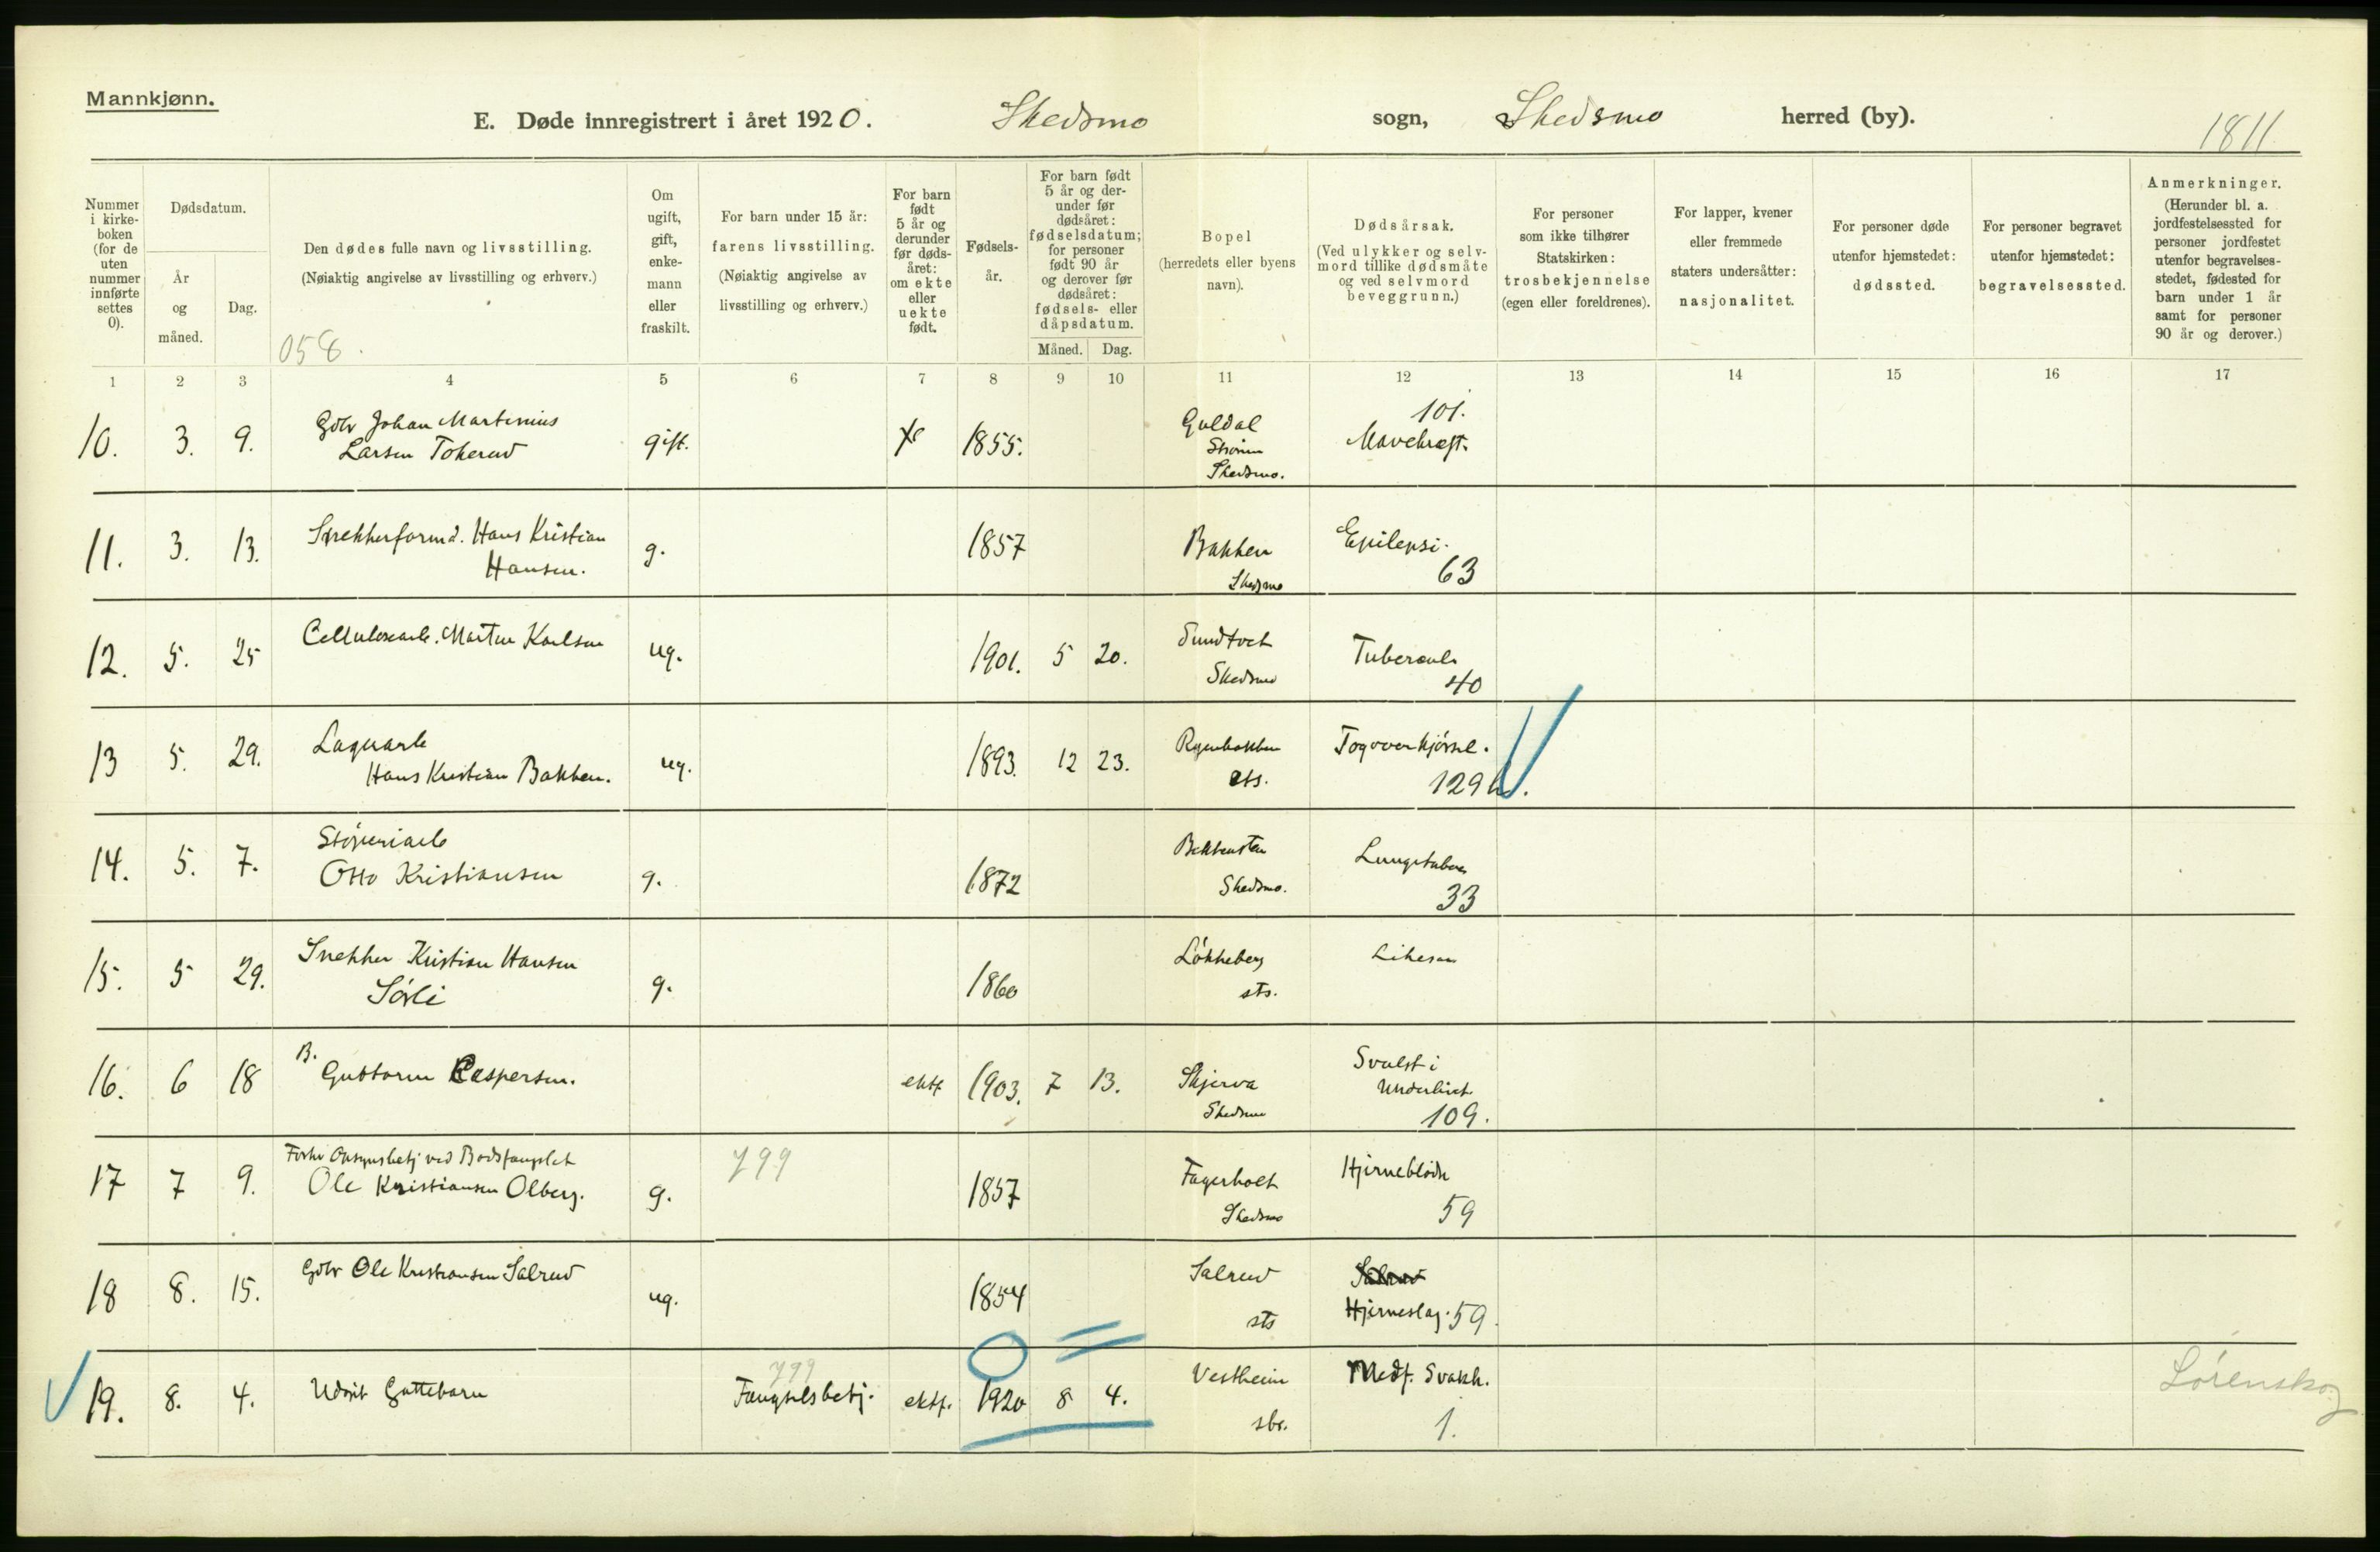 Mannkjønn.
E. Døde innregistrert i året 1920. Skedsmo sogn, Skedsmo herred (by).
1811
Nummer i kirkeboken (for de uten nummer innførte settes 0).
Dødsdatum.
År og måned.
Dag.
Den dødes fulle navn og livsstilling.
(Nøiaktig angivelse av livsstilling og erhverv.)
058.
Om ugift, gift, enkemann eller fraskilt.
For barn under 15 år: farens livsstilling.
(Nøiaktig angivelse av livsstilling og erhverv.)
For barn født 5 år og derunder før dødsåret: om ekte eller uekte født.
Fødselsår.
For barn født 5 år og derunder før dødsåret: fødselsdatum; for personer født 90 år og derover før dødsåret: fødsels- eller dåpsdatum.
Måned. Dag.
Bopel
(herredets eller byens navn).
Dødsårsak.
(Ved ulykker og selvmord tillike dødsmåte og ved selvmord beveggrunn.)
For personer som ikke tilhører Statskirken: trosbekjennelse (egen eller foreldrenes).
For lapper, kvener eller fremmede staters undersåtter: nasjonalitet.
For personer døde utenfor hjemstedet: dødssted.
For personer begravet utenfor hjemstedet: begravelsessted.
Anmerkninger.
(Herunder bl. a. jordfestelsessted for personer jordfestet utenfor begravelsesstedet, fødested for barn under 1 år samt for personer 90 år og derover.)
1 2 3 4 5 6 7 8 9 10 11 12 13 14 15 16 17
10. 3. 9. Gdbr Johan Martinius
Larsen Tokerud gift. 1855. Guldal
Strøm
Skedsmo.
101.
Mavekræft.
11. 3. 13. Snekkerformd. Hans Kristian
Hansen. g. 1857 Bakken
Skedsmo
Epilepsi.
63
12. 5. 25 Cellulosearb. Martin Karlsen ug. 1901. 5 20. Sundtvet
Skedsmo
Tuberculs
40
13 5. 29. Lagerarb
Hans Kristian Bakken. ug. 1893. 12 23. sts.
Togoverkjørsel.
129
14. 5. 7. Støperiarb
Otto Kristiansen g. 1872 Bekkensten
Skedsmo.
Lungetuber
33
15. 5 29. Snekker Kristian Hansen
Sørli g. 1860 Løkkeberg
sts.
16. 6 18 B. Guttorm Caspersen. ekte 1903. 7 13. Skjerva
Skedsmo
Svulst i
Underlivet
109.
17 7 9. Forhv Opsynsbetj ved Bodsfængslet
Ole Kristiansen Olberg. g. 799 1857 Fagerholt
Skedsmo
Hjerneblødn
59
18 8. 15. Gdbr Ole Kristiansen Salrud ug. 1854 Salrud
sts
Hjerneslag. 59.
19. 8. 4. Udøpt Guttebarn 799
Fængselsbetj. ekte. 1920 8 4. Vestheim
sbs.
Medf. Svakh.
1.
Lørenskog